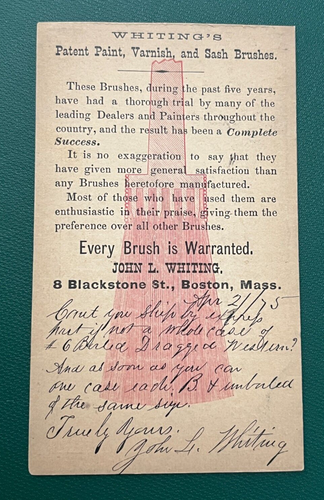 WHITING'S
Patent Paint, Varnish, and Sash Brushes.
These Brushes, during the past five years,
have had a thorough trial by many of the
leading Dealers and Painters throughout the
country, and the result has been a Complete
Success.
It is no exaggeration to say that they
have given more general satisfaction than
any Brushes heretofore manufactured.
Most of those who have used them are
enthusiastic in their praise, giving them the
preference over all other Brushes.
Every Brush is Warranted.
JOHN L. WHITING,
8 Blackstone St., Boston, Mass.
Apr 21/75
Cant you ship by express
part if not a whole case of
#6 Boiled Dragged Western?
And as soon as you can
one case each B & unboiled
of the same size.
Truely Yours.
John L. Whiting